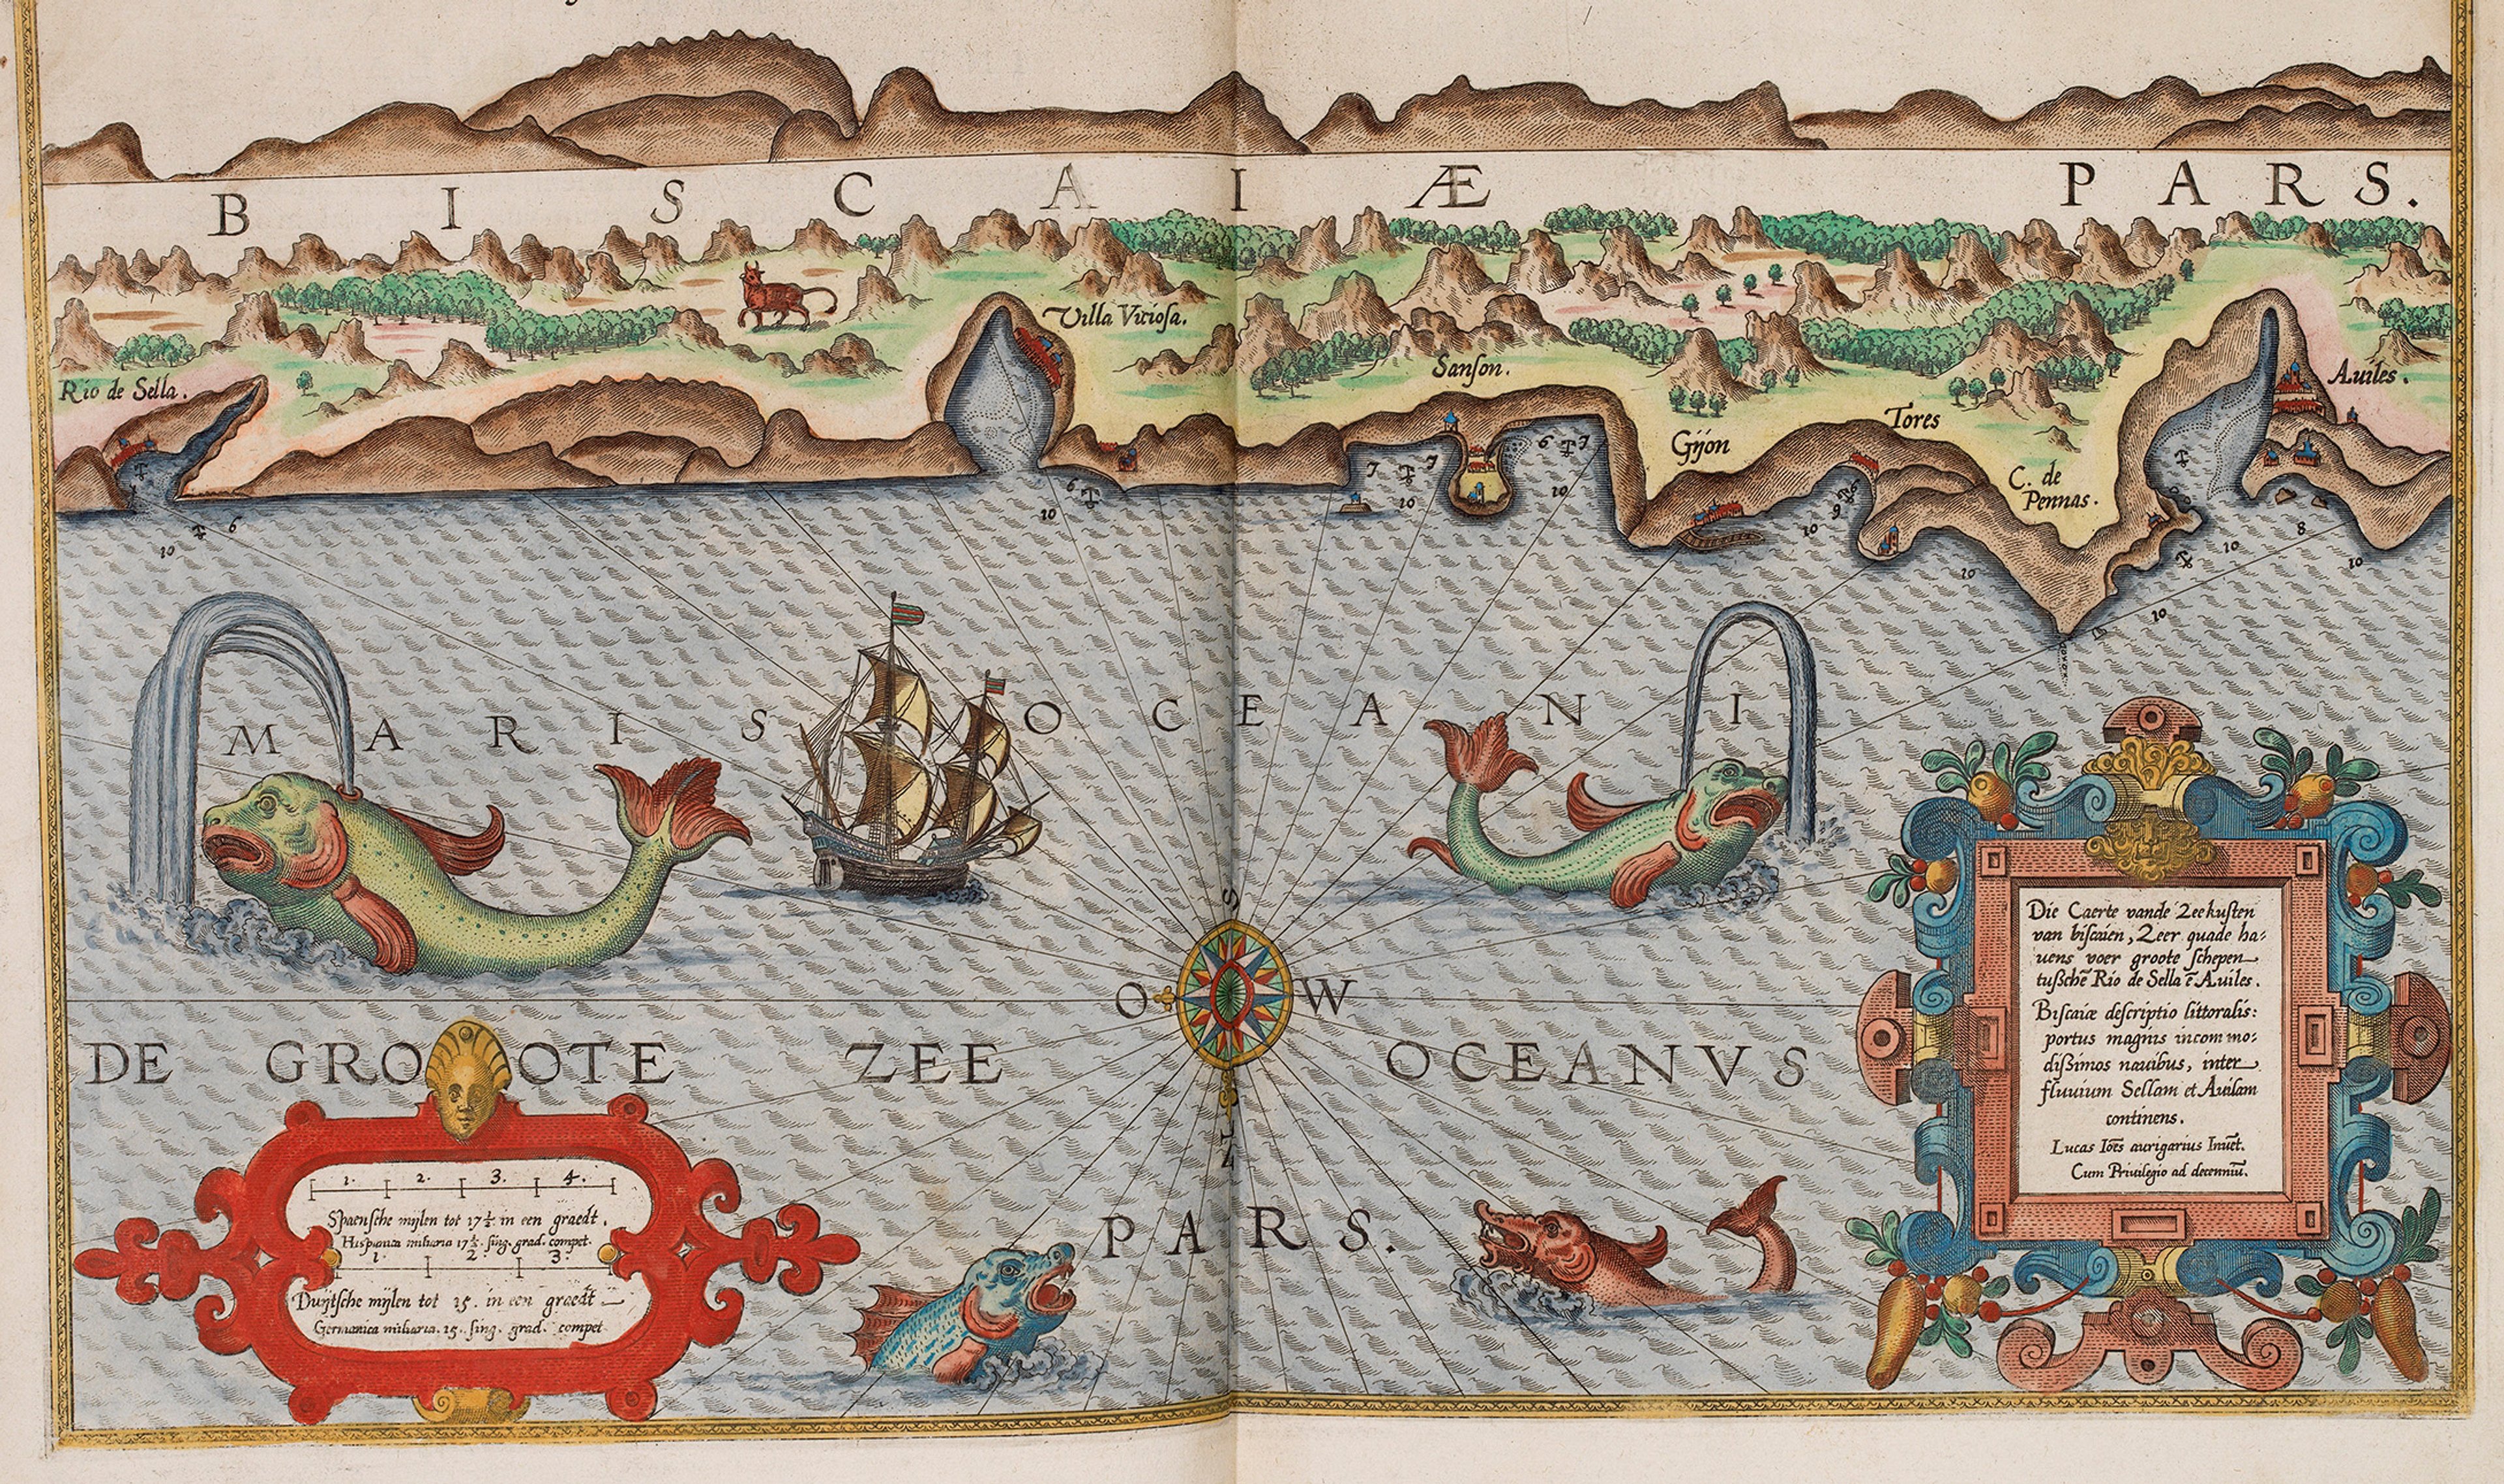 BISCAIÆ PARS.
Villa Vitiosa.
Rio de Sella.
Sanson.
Auiles.
Tores
Gijon
C. de
Pennas.
10 6
6
10
7 7
10
6 7
10
10 9 6
10
10 8
10
10
MARIS OCEANI
S
O W
DE GROOOTE ZEE OCEANVS
Z
PARS.
1. 2. 3. 4.
Spaensche mijlen tot 17½ in een graedt.
Hispanica miliaria 17½. sing. grad. compet.
1. 2. 3.
Duijtsche mijlen tot 15. in een graedt
Germanica miliaria. 15. sing. grad. compet
Die Caerte vande Zeekusten
van biscaien, Zeer quade ha-
uens voer groote schepen
tusschē Rio de Sella ē Auiles.
Biscaiæ descriptio littoralis:
portus magnis incommo-
dissimos nauibus, inter
fluuium Sellam et Auilam
continens.
Lucas Ioēs aurigarius Inuēt.
Cum Priuilegio ad decenniū.